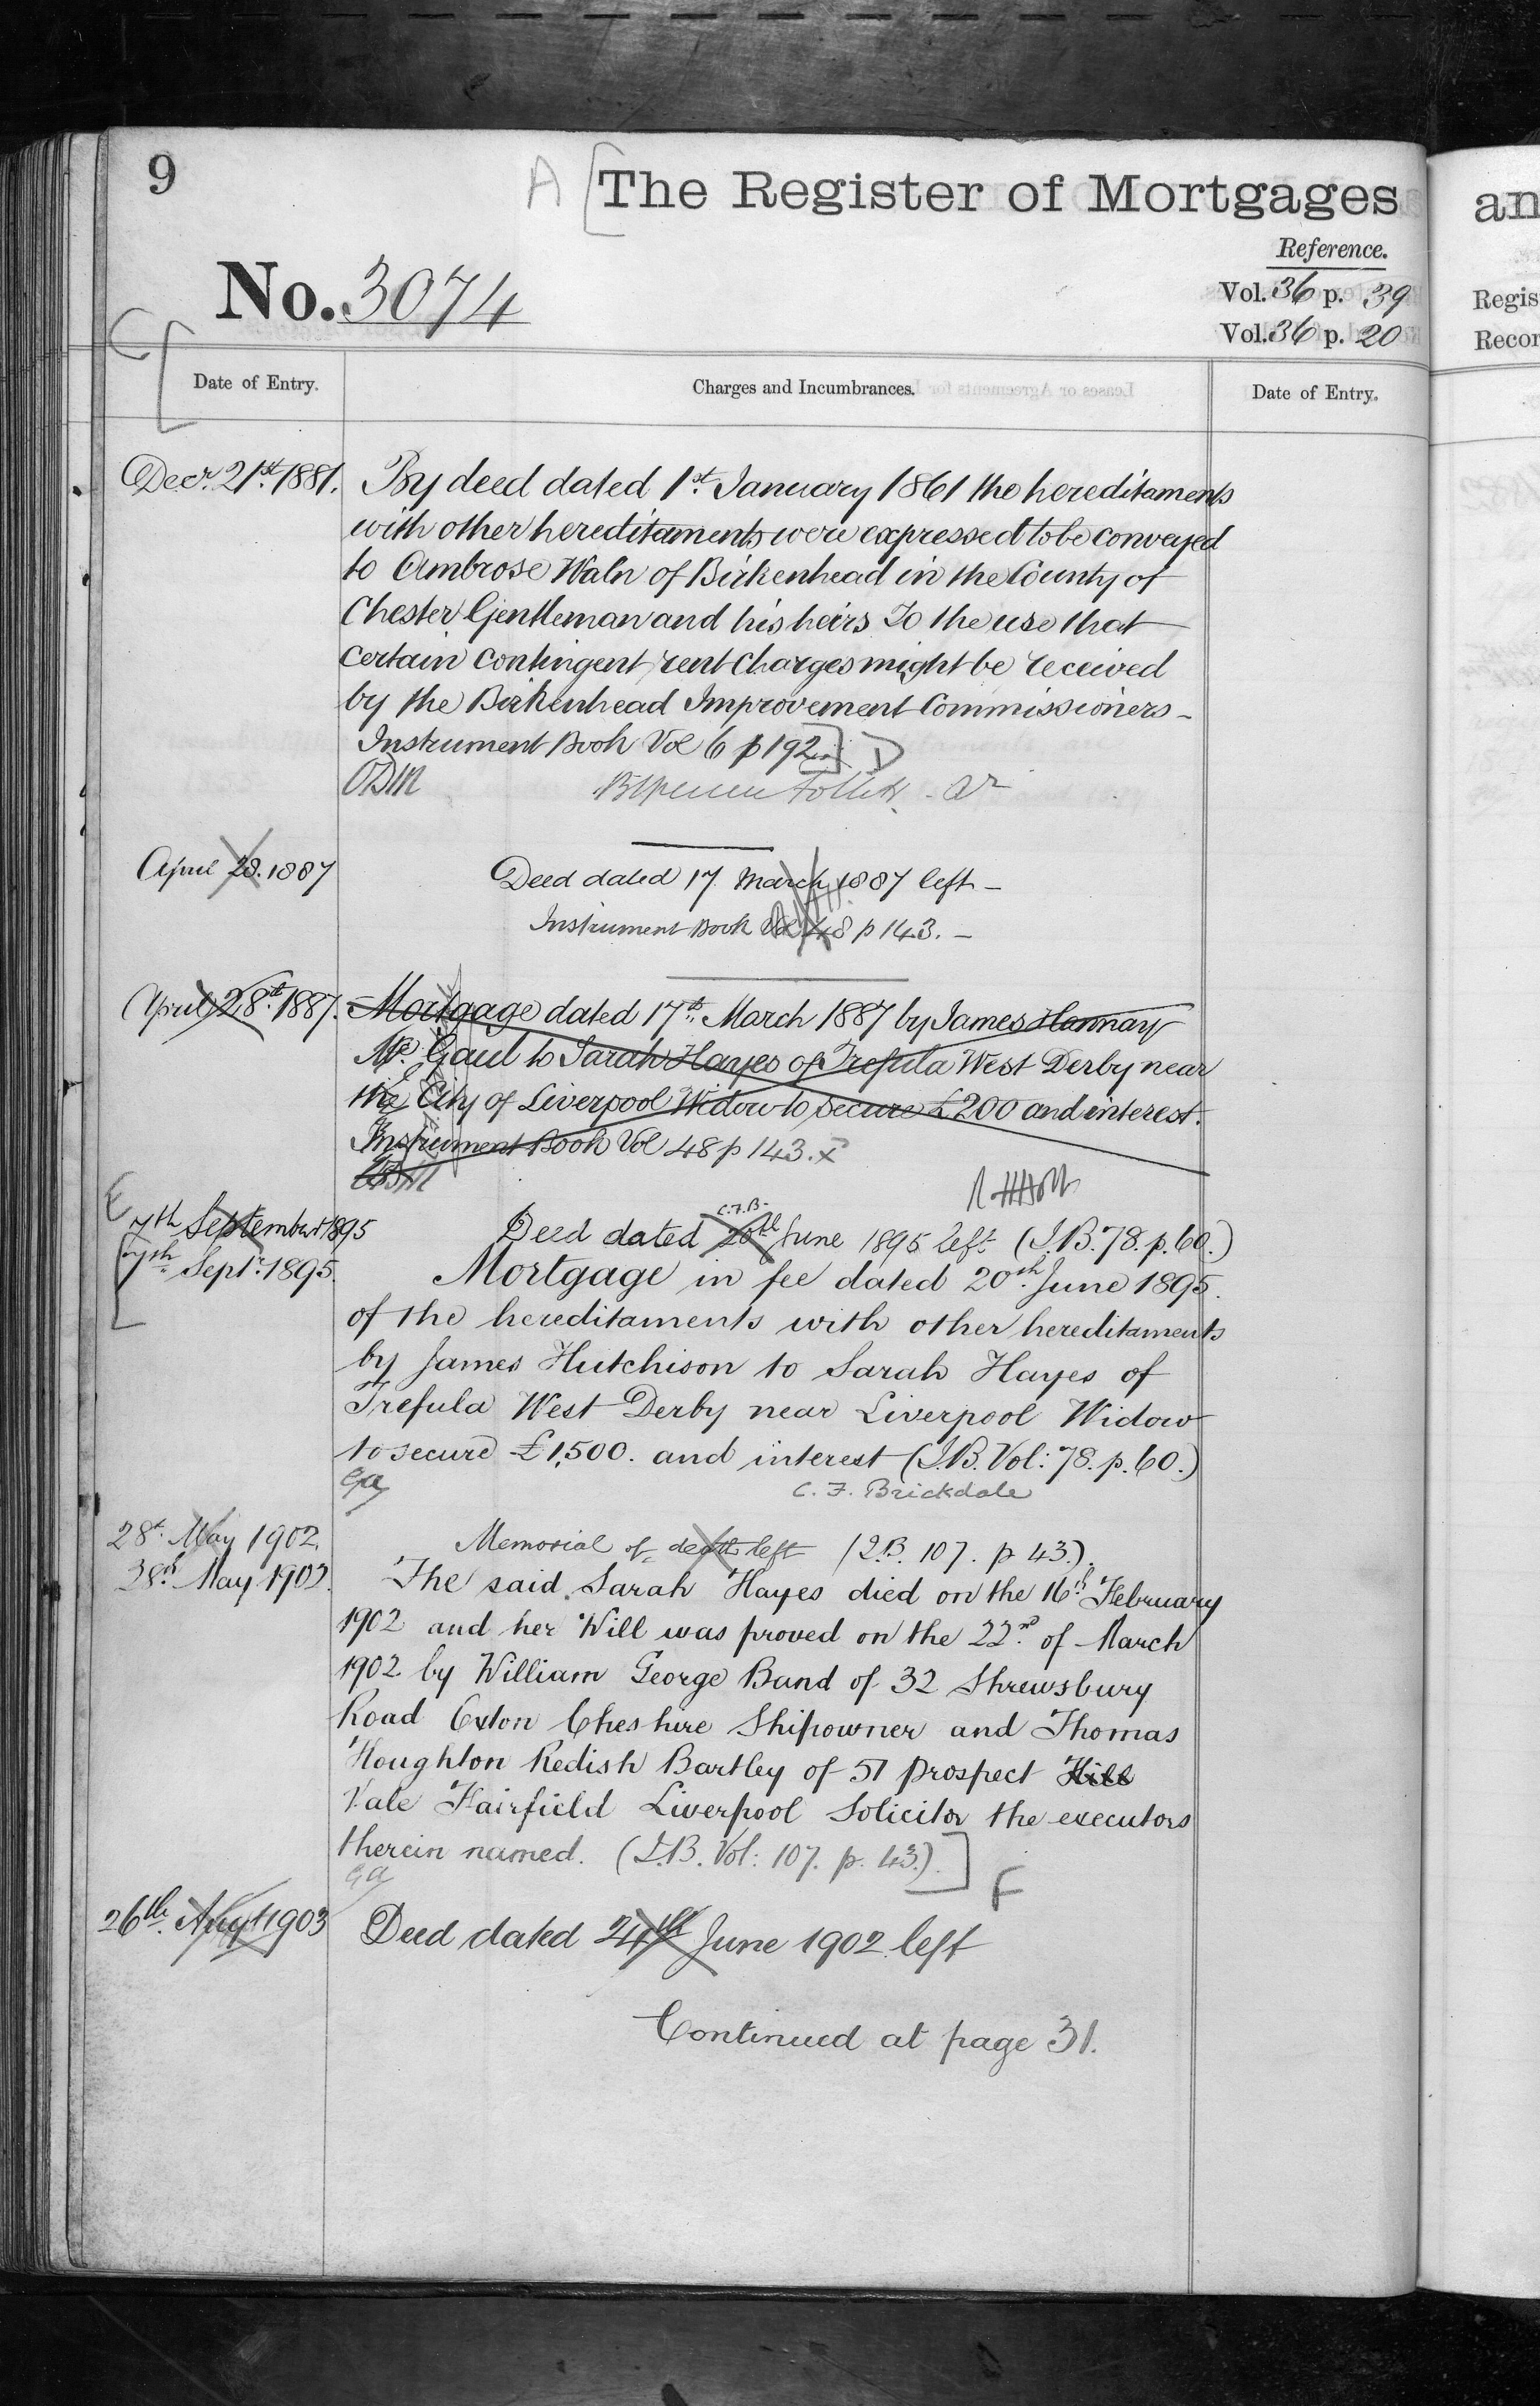 9
A [The Register of Mortgages
an
Reference.
No. 3074
Vol. 36 p. 39
Regis
Vol. 36 p. 20
Recor
C [
Date of Entry.
Charges and Incumbrances.
Date of Entry.
Decr. 21st. 1881.
By deed dated 1st. January 1861 the hereditaments
with other hereditaments were expressed to be conveyed
to Ambrose Waln of Birkenhead in the County of
Chester Gentleman and his heirs To the use that
certain contingent rent charges might be received
by the Birkenhead Improvement Commissioners -
Instrument Book Vol 6 p 192 ] D
April 28. 1887
Deed dated 17 March 1887 left -
Instrument Book Vol 48 p 143. -
April 28th. 1887.
Mortgage dated 17th. March 1887 by James Hannay
Mc. Gaul to Sarah Hayes of Trefula West Derby near
the City of Liverpool Widow to secure £200 and interest.
Instrument Book Vol 48 p 143. x
E
7th September 1895
C.F.B.
Deed dated 20th June 1895 left (I.B. 78. p. 60.)
[7th. Sept. 1895.
Mortgage in fee dated 20th. June 1895.
of the hereditaments with other hereditaments
by James Hutchison to Sarah Hayes of
Trefula West Derby near Liverpool Widow
to secure £1,500. and interest (I.B. Vol: 78. p. 60.)
C. F. Brickdale
28t. May 1902.
Memorial of death left (I.B. 107. p 43.).
28th May 1902.
The said Sarah Hayes died on the 16th. February
1902 and her Will was proved on the 22nd. of March
1902 by William George Band of 32 Shrewsbury
Road Oxton Cheshire Shipowner and Thomas
Houghton Redish Bartley of 51 Prospect Hill
Vale Fairfield Liverpool Solicitor the executors
therein named. (I.B. Vol: 107. p. 43.). ] F
26th. Augt 1903
Deed dated 24th June 1902 left
Continued at page 31.